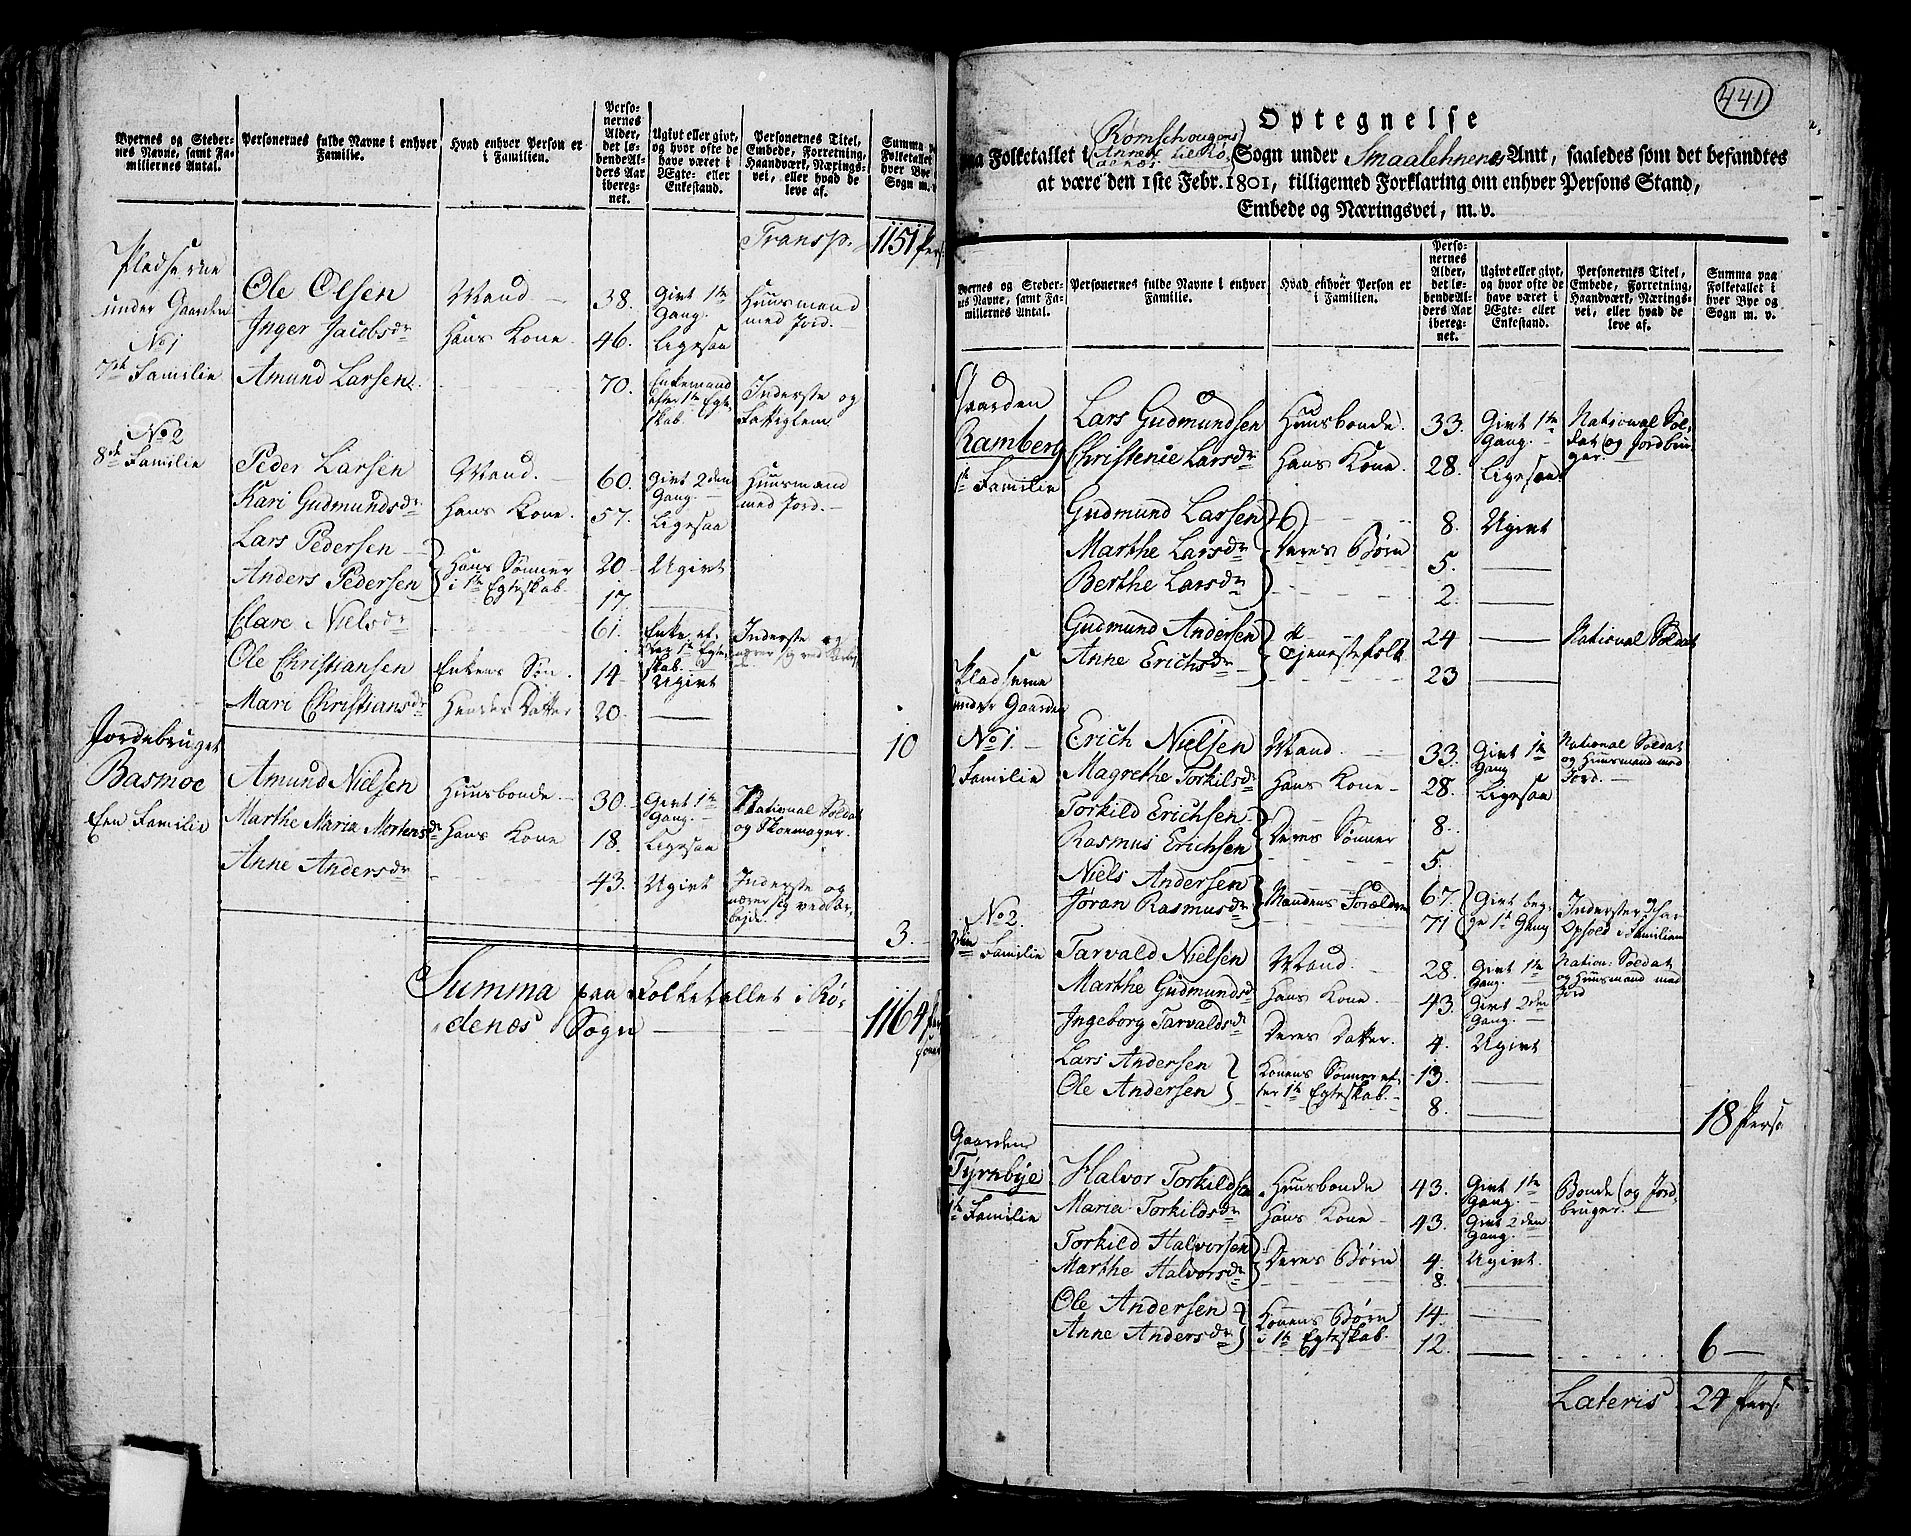 Byernes og Steder-
nes Navne, samt Fa-
miliernes Antal.
Personernes fulde Navne i enhver
Familie.
Hvad enhver Person er
i Familien.
Perso-
nernes
Alder,
det lø-
bende Al-
ders Aar
ibereg-
net.
Ugivt eller givt,
og hvor ofte de
have været i
Ægte- eller
Enkestand.
Personernes Titel,
Embede, Forretning,
Haandværk, Nærings-
vei, eller hvad de
leve af.
Summa p
Folketallet
hver Bye
Sogn m. v
Transp. 1151 Pers
Pladserne
under Gaarden
No 1
7de Familie
Ole Olsen Mand 38. Givt 1te Gang. Huusmand med Jord.
Inger Jacobsdr Hans Kone. 46. Ligesaa
Amund Larsen. 70. Enkemand efter 1te Egteskab. Inderste og Fattiglem
No 2
8de Familie
Peder Larsen Mand. 60. Givt 2den Gang. Huusmand med Jord.
Kari Gudmundsdr Hans Kone. 57. Ligesaa
Lars Pedersen Hans Sønner 20 Ugivt
Anders Pedersen i 1te Egteskab. 17.
Clare Nielsdr 61. Enke ef- ter 1te Egte- skab. Inderste og nærer sig ved
Ole Christiansen Enkens Søn. 14 Ugivt
Mari Christiansdr Hendes Datter 20.
10
Jordebruget
Basmoe
Een Familie
Amund Nielsen Huusbonde. 30. Givt 1te Gang. National Soldat og Skoemager.
Marthe Maria Mortensdr Hans Kone 18. Ligesaa
Anne Andersdr 43. Ugivt Inderste og nærer sig ved Ar- bejde
3.
Summa paa Folketallet i Rø-
denæs Sogn 1164 Per
soner
441
Optegnelse
paa Folketallet i Rømschougens Annex til Rø- denæs Sogn under Smaalehnenes Amt, saaledes som det befandtes
at være den 1ste Febr. 1801, tilligemed Forklaring om enhver Persons Stand,
Embede og Næringsvei, m. v.
Byernes og Steder-
nes Navne, samt Fa-
miliernes Antal.
Personernes fulde Navne i enhver
Familie.
Hvad enhver Person er
i Familien.
Perso-
nernes
Alder,
det lø-
bende Al-
ders Aar
ibereg-
net.
Ugivt eller givt,
og hvor ofte de
have været i
Ægte- eller
Enkestand.
Personernes Titel,
Embede, Forretning,
Haandværk, Nærings-
vei, eller hvad de
leve af.
Summa paa
Folketallet i
hver Bye og
Sogn m. v.
Gaarden
Ramberg
1te Familie
Lars Gudmundsen Huusbonde. 33. Givt 1te Gang. National Sol- dat og Jordbru- ger.
Christenie Larsdr Hans Kone. 28. Ligesaa
Gudmund Larsen 8. Ugivt
Marthe Larsdr Deres Børn 5.
Berthe Larsdr 2.
Gudmund Andersen 24 National Soldat
Anne Erichsdr Tjenestefolk 23
Pladserne
under Gaarden
No 1.
Familie
Erich Nielsen Mand. 33. Givt 1te Gang National Soldat og Huusmand med Jord.
Magrethe Torkilsdr Hans Kone 28. Ligesaa
Torkild Erichsen Deres Sønner 8.
Rasmus Erichsen 5.
Niels Andersen Mandens Forældre 67. Givt beg- Inderster og har
Jøran Rasmusdr 71 ge 1te Gang Ophold i Familien
No 2.
Familie
Tarvald Nielsen Mand. 28. Givt 1te Gang. Nation: Soldat og Huusmand med Jord
Marthe Gudmundsdr Hans Kone. 43. Givt 2den Gang.
Ingeborg Tarvaldsdr Deres Datter. 4. Ugivt
Lars Andersen Konens Sønner ef- 13.
Ole Andersen ter 1te Egteskab. 8.
18 Pers:
Gaarden
Tyrnbye
1te Familie
Halvor Torkildsen Huusbonde 43. Givt 1te Gang. Bonde og Jord- bruger.
Maria Torkildsdr Hans Kone 43. Givt 2den Gang.
Torkild Halvorsen Deres Børn 4. Ugivt.
Marthe Halvorsdr 8.
Ole Andersen Konens Børn 14.
Anne Andersdr i 1te Egteskab. 12.
6
Lateris 24 Pers.